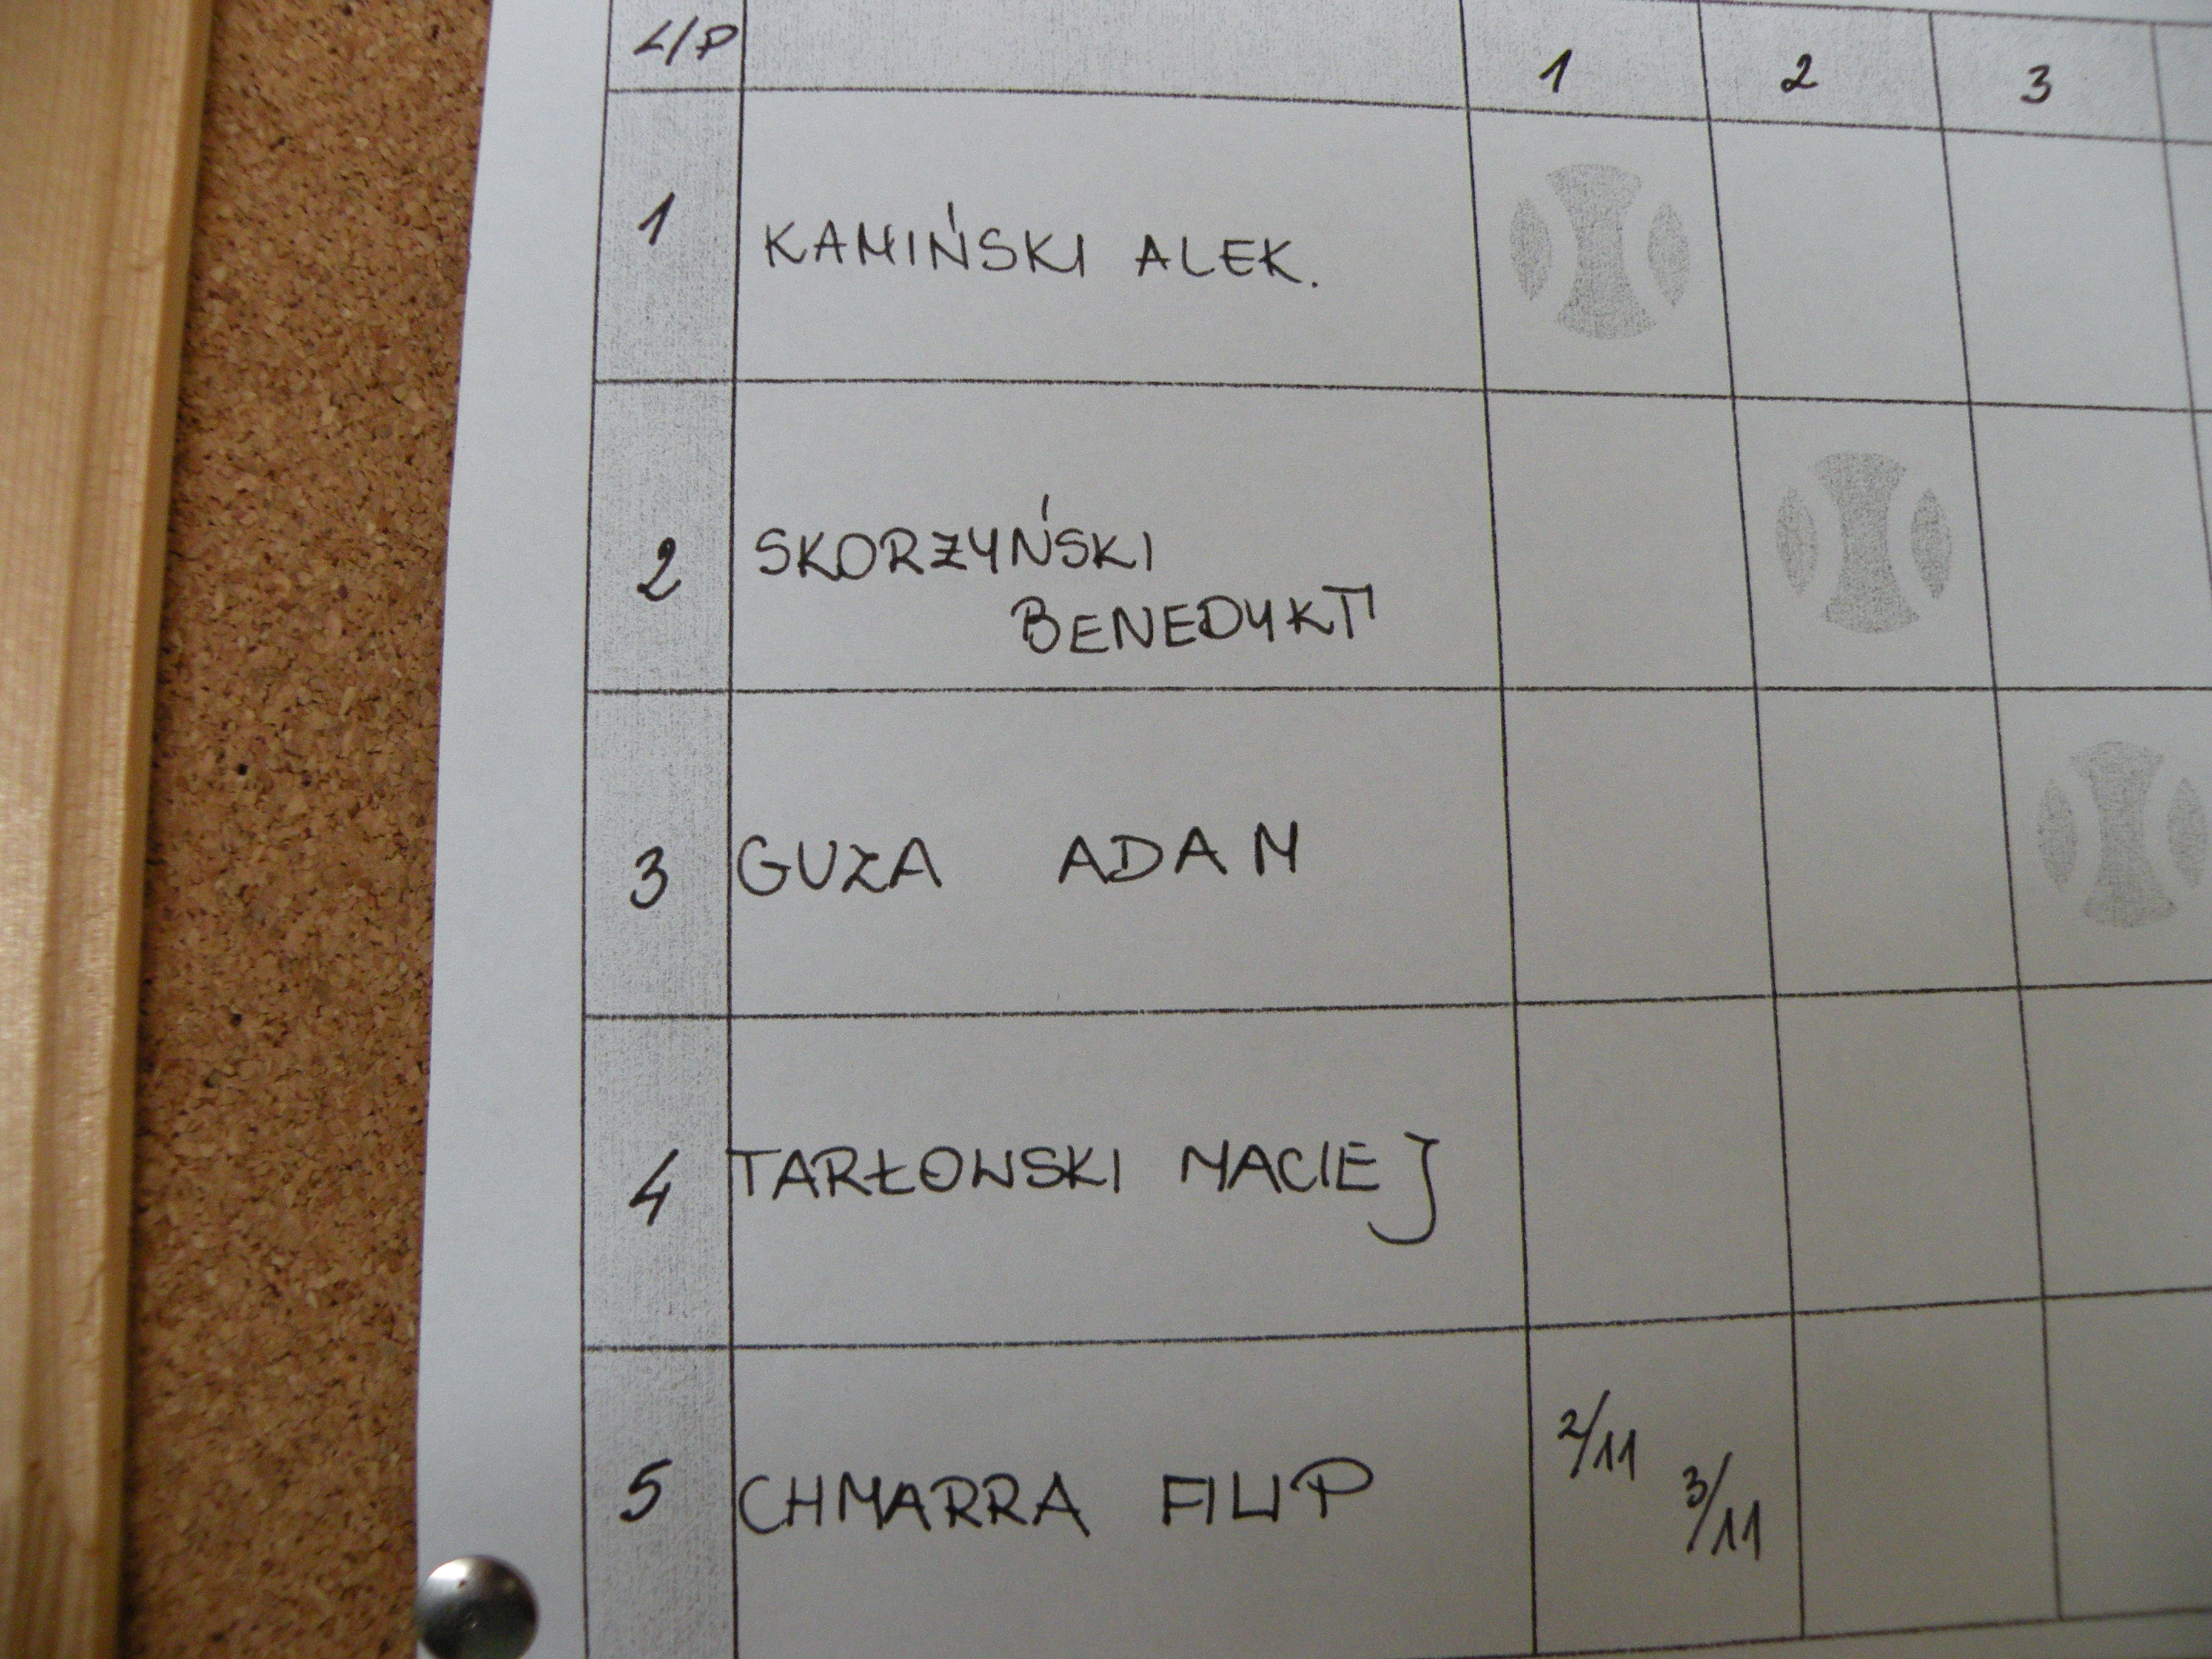 L/P 1 2 3
1 KAMIŃSKI ALEK.
2 SKORZYŃSKI
BENEDYKT
3 GUZA ADAM
4 TARŁOWSKI MACIEJ
5 CHMARRA FILIP 2/11 3/11